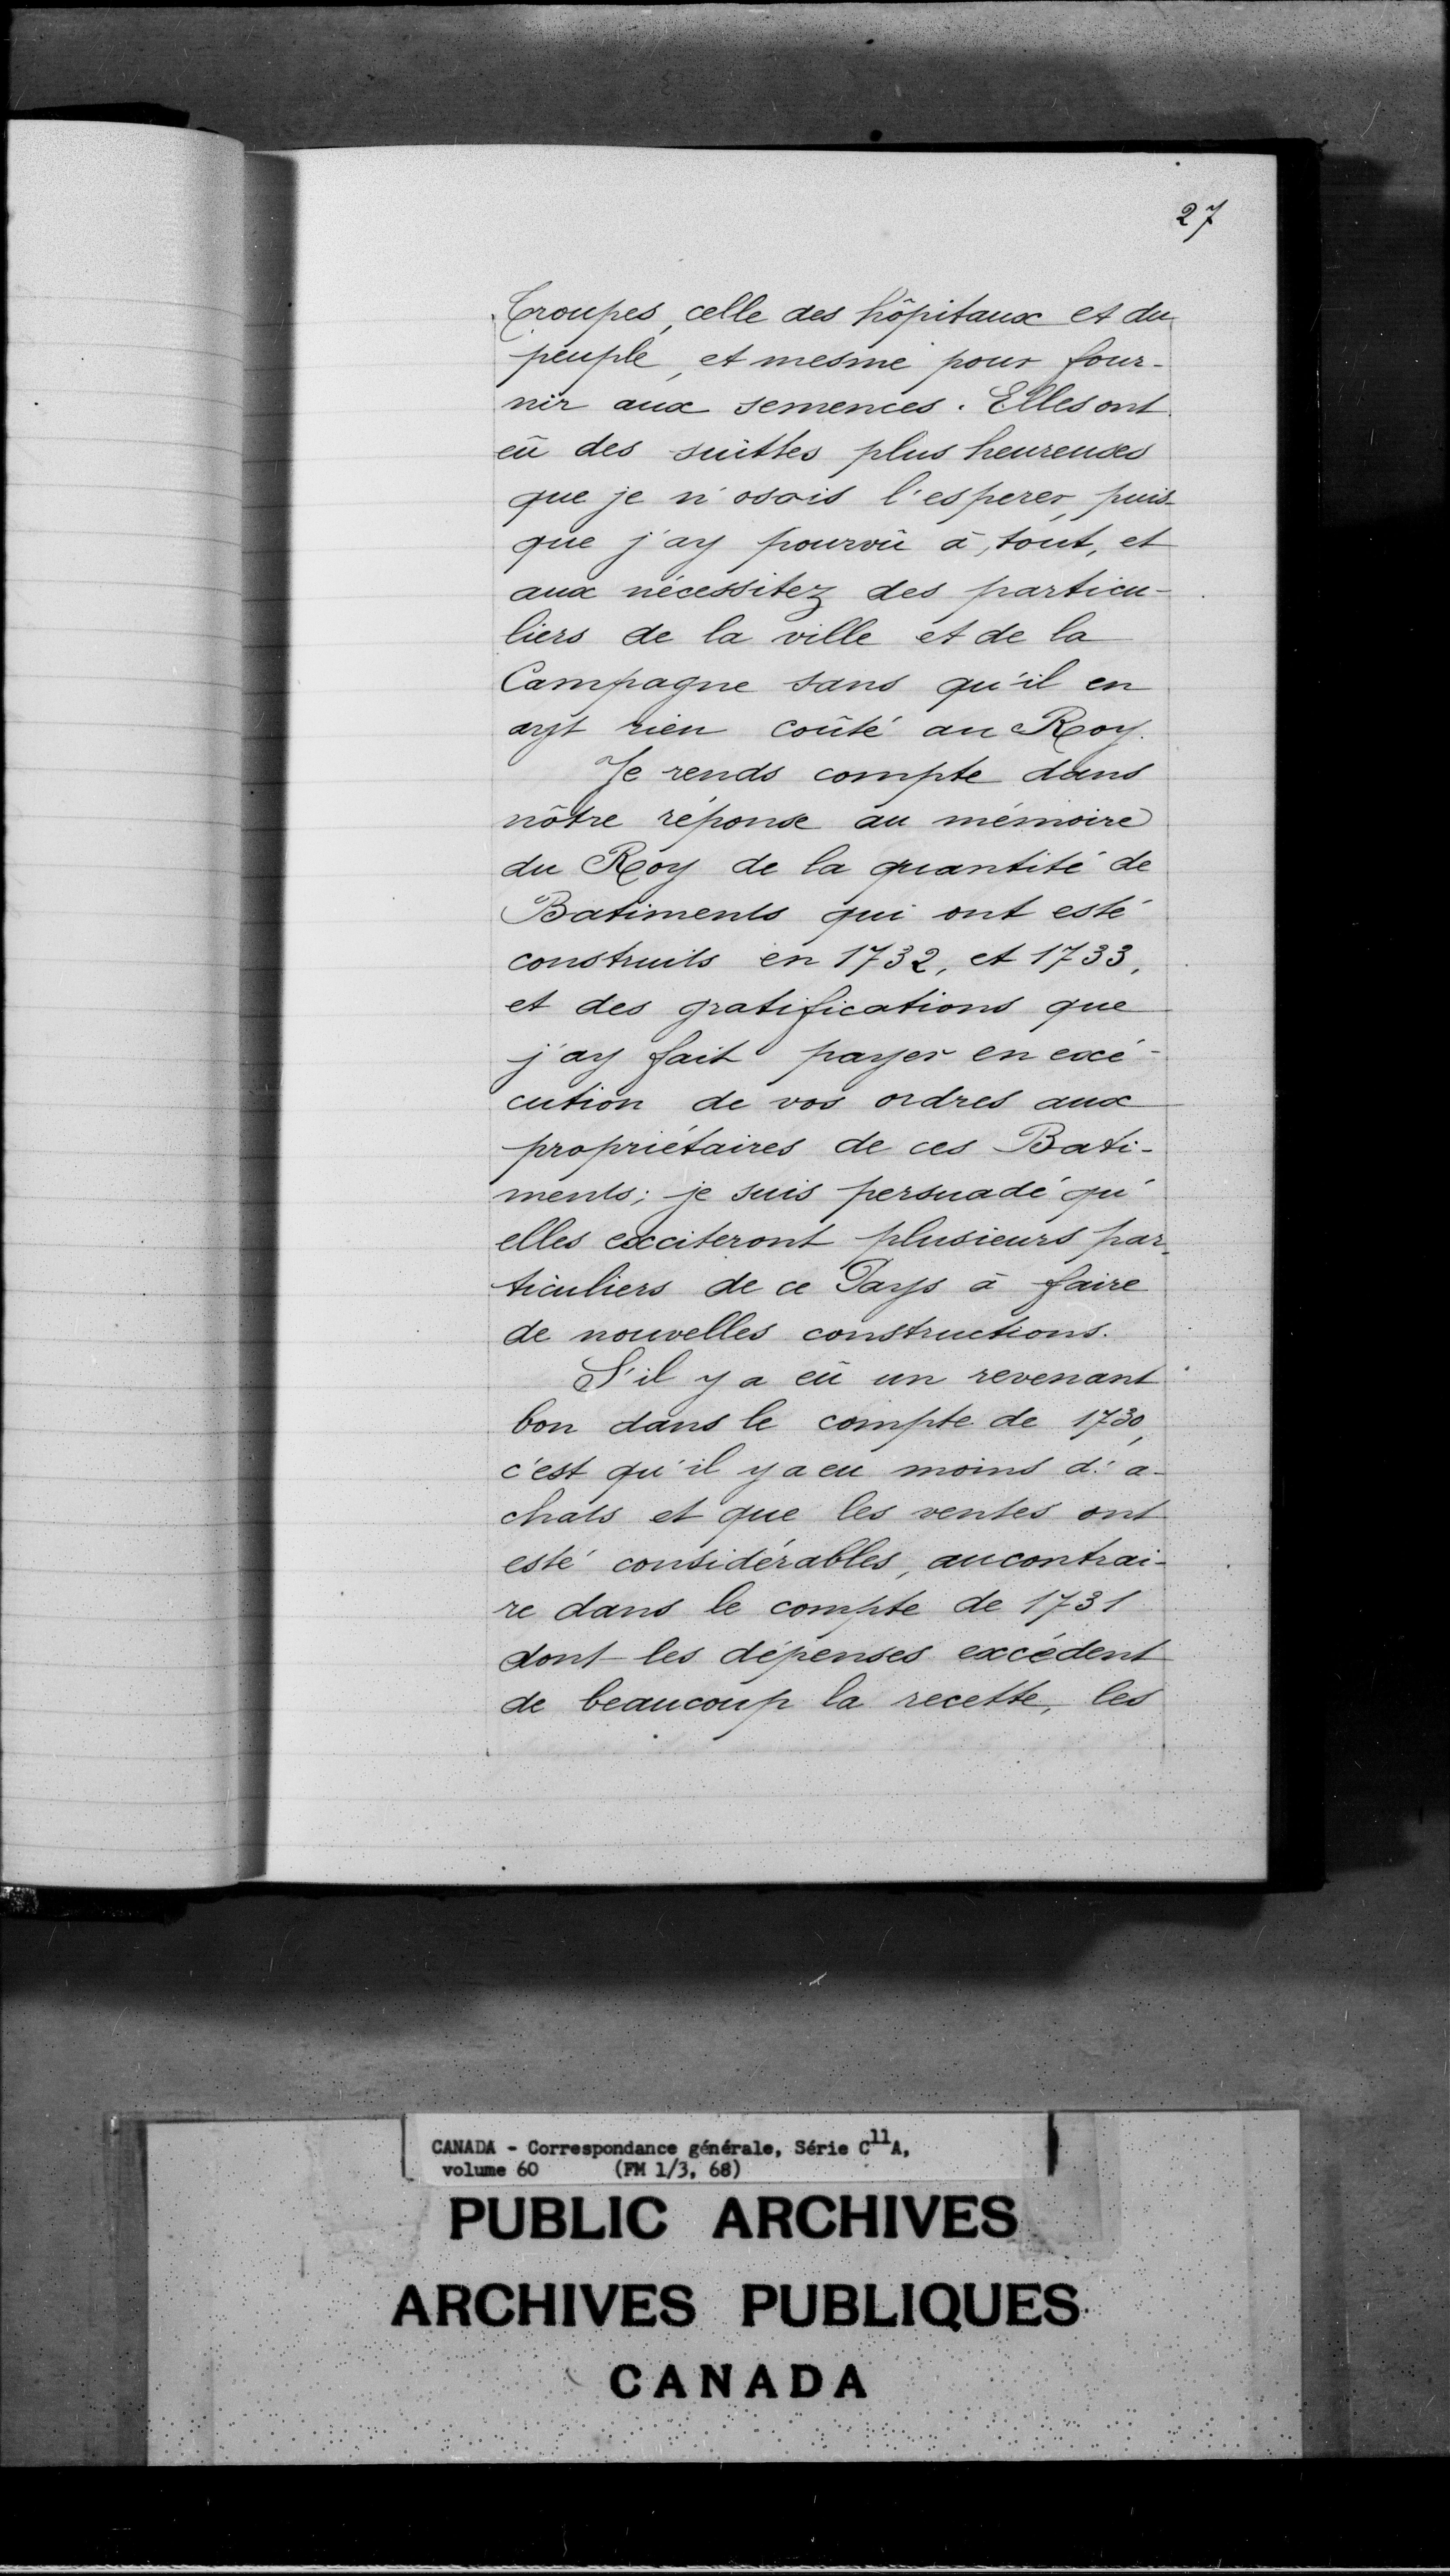 27
Troupes, celle des hôpitaux et du
peuple, et mesme pour four-
nir aux semences. Elles ont
eû des suittes plus heureuses
que je n'osois l'esperer, puis-
que j'ay pourvû à tout, et
aux nécessitez des particu-
liers de la ville et de la
Campagne sans qu'il en
ayt rien coûté au Roy.
Je rends compte dans
nôtre réponse au mémoire
du Roy de la quantité de
Batiments qui ont esté
construits en 1732, et 1733,
et des gratifications que
j'ay fait payer en exé-
cution de vos ordres aux
propriétaires de ces Bati-
ments; je suis persuadé qu'
elles exciteront plusieurs par-
ticuliers de ce Pays à faire
de nouvelles constructions.
S'il y a eû un revenant
bon dans le compte de 1730,
c'est qu'il y a eu moins d'a-
chats et que les ventes ont
esté considérables, au contrai-
re dans le compte de 1731
dont les dépenses excédent
de beaucoup la recette, les
CANADA - Correspondance générale, Série C11A,
volume 60 (FM 1/3, 68)
PUBLIC ARCHIVES
ARCHIVES PUBLIQUES
CANADA